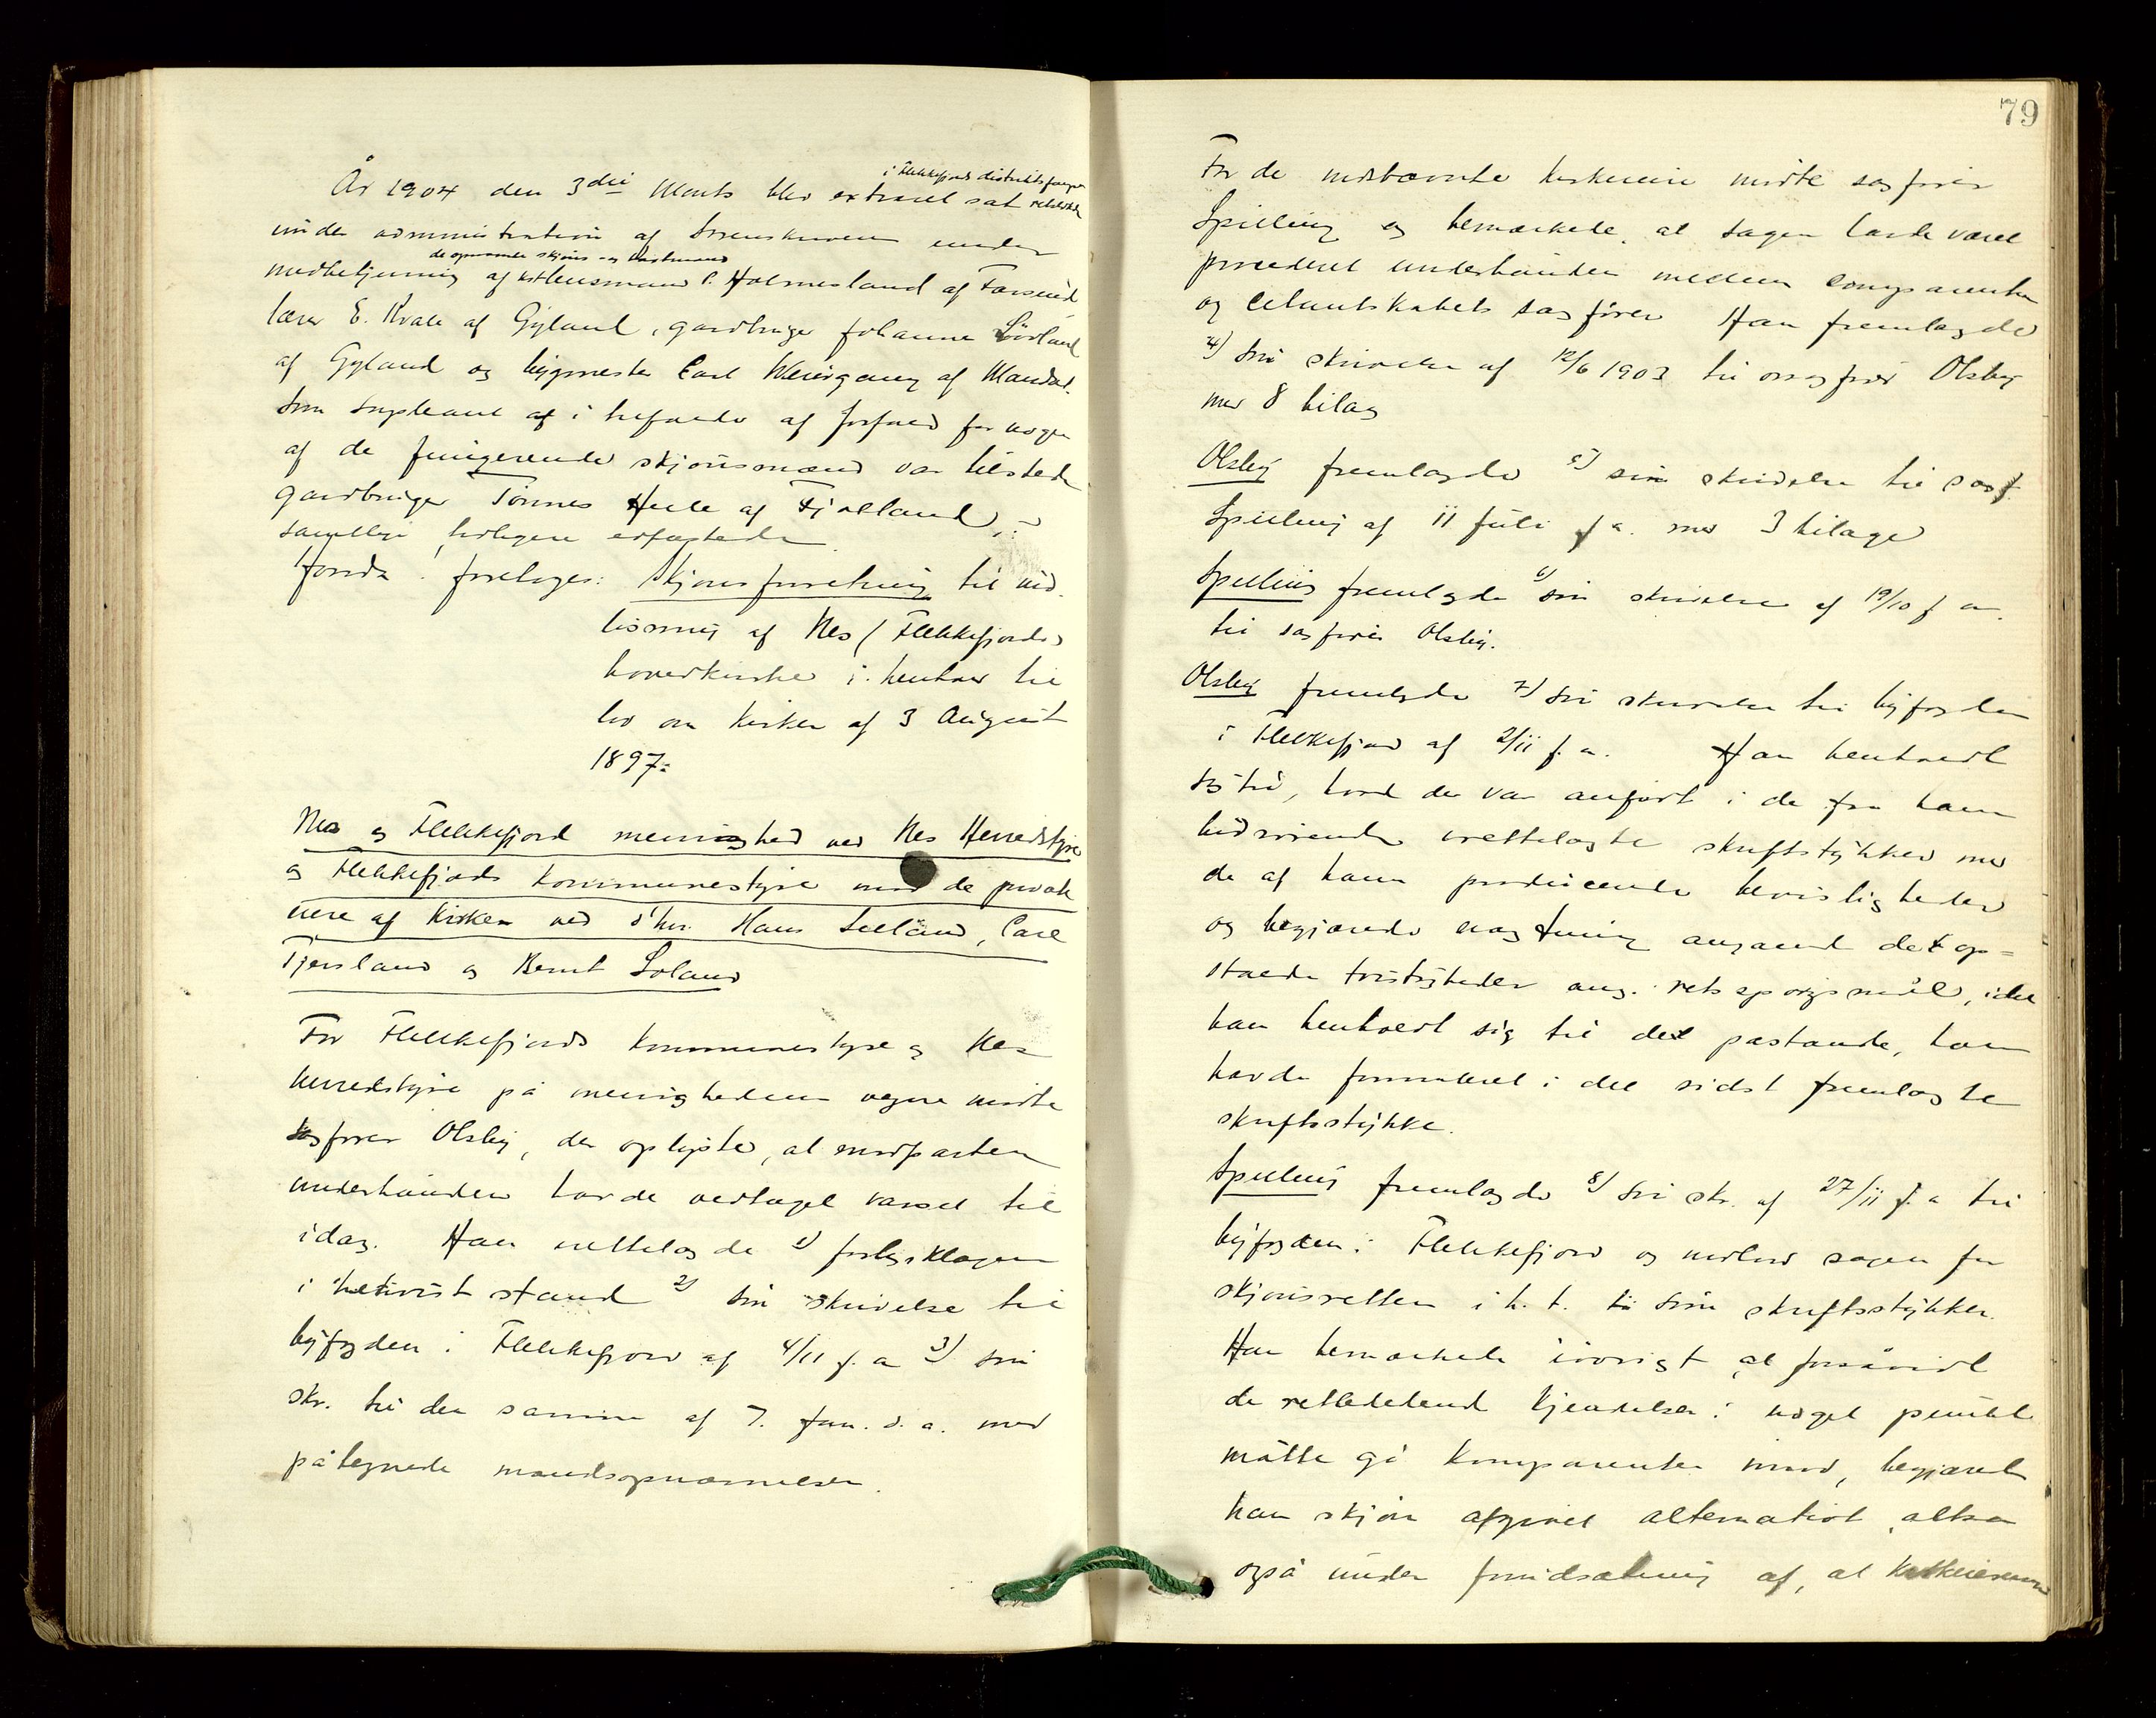 i Flekkefjords distriktsfængsel
År 1904 den 3die Marts blev extraret sat retslokale
under administration af Sorenskriveren under
de opnævnte skjøns- og
medbetjening af Lensmand C. Holmesland af Farsund
lærer E. Kvale af Gyland, gardbruger Johannes Løvland
af Gyland og bygmester Carl Weiergang af Mandal.
Som supleant i tilfælde af forfald for nogen
af de fungerende skjønsmænd var tilstede
gardbruger Tønnes Hule af Fjotland,
samtlige tidligere edfæstede
foretages: Skjønsforretning til ind-
løsning af Nes (Flekkefjords)
hovedkirke i henhold til
lov om kirker af 3 August
1897:
Nes og Flekkefjord menighed ved Nes Herredstyre
og Flekkefjords kommunestyre mod de private
eiere af kirken ved d'hrr. Hans Seeland, Carl
Tjersland og Bernt Soland
For Flekkefjords kommunestyre og Nes
herredstyre på menighedens vegne mødte
sagfører Olsby, der oplyste, at modparten
underhånden havde vedtaget varsel til
idag. Han rettelagde 1) forligsklagen
i beskreven stand 2) sin skrivelse til
byfogden i Flekkefjord af 4/11 f. a 3) sin
skr. til den samme af 7. Jan. d. a. med
påtegnede mandsopnævnelser.
79
For de indstævnte kirkeeiere mødte sagfører
Spilling og bemærkede, at sagen havde været
procederet underhånden mellem comparenten
og citantskabets sagfører. Han fremlagde
4) sin skrivelse af 12/6 1903 til Olsby
med 8 bilag
Olsby fremlagde 5) sin skrivelse til sagf.
Spilling af 11 Juli f a. med 3 bilage
Spilling fremlagde 6) sin skrivelse af 19/10 f a.
til sagfører Olsby.
Olsby fremlagde 7) sin skrivelse til byfogden
i Flekkefjord af 2/11 f. a. Han henholdt
sig til, hvad der var anført i de fra ham
hidrørende retteladte skriftstykker med
de af ham producerede bevisligheder
og begjærede angaaende det op-
staaede tvistigheder ang. retsspørgsmål, idet
han henholdt sig til det pastande, han
havde formuleret i det sidst fremlagte
skriftsstykke.
Spilling fremlagde 8) sin skr. af 27/11 f. a til
byfogden i Flekkefjord og indlod sagen for
skjønsretten i h. t. til sine skriftsstykker.
Han bemærkede iøvrigt, at forsåvidt
de retledende kjendelser i noget punkt
måtte gå komparenten imod, begjæredes
han skjøn afgivet alternativt, altsa
også under forudsætning af, at kirkeeierne